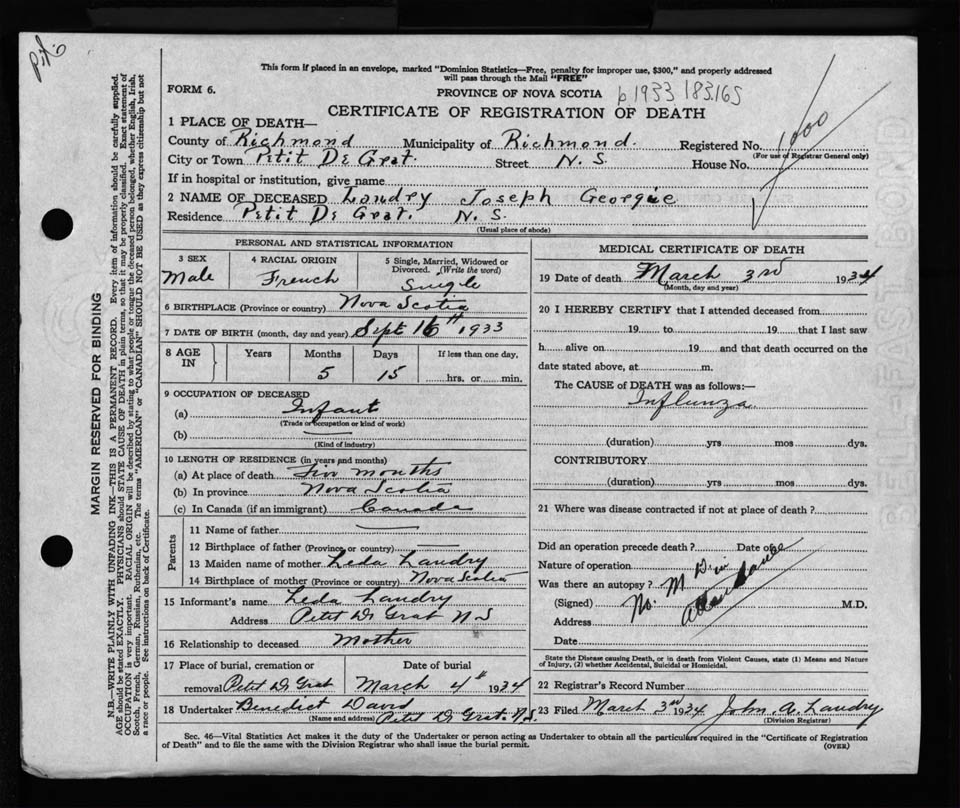 This form if placed in an envelope, marked "Dominion Statistics—Free, penalty for improper use, $300," and properly addressed
will pass through the Mail "FREE"
FORM 6.
PROVINCE OF NOVA SCOTIA
b 1933 183165
CERTIFICATE OF REGISTRATION OF DEATH
1 PLACE OF DEATH—
County of Richmond Municipality of Richmond. Registered No. 1000
(For use of Registrar General only)
City or Town Petit De Grat. Street N. S. House No.
If in hospital or institution, give name
2 NAME OF DECEASED Landry Joseph Georgie
Residence Petit De Grat. N. S.
(Usual place of abode)
PERSONAL AND STATISTICAL INFORMATION
3 SEX Male
4 RACIAL ORIGIN French
5 Single, Married, Widowed or Divorced. (Write the word) Single
6 BIRTHPLACE (Province or country) Nova Scotia
7 DATE OF BIRTH (month, day and year) Sept 16th 1933
8 AGE IN Years Months Days If less than one day.
5 15 hrs. or min.
9 OCCUPATION OF DECEASED
(a) Infant
(Trade or occupation or kind of work)
(b)
(Kind of industry)
10 LENGTH OF RESIDENCE (in years and months)
(a) At place of death Five months
(b) In province Nova Scotia
(c) In Canada (if an immigrant) Canada
Parents
11 Name of father
12 Birthplace of father (Province or country)
13 Maiden name of mother Leda Landry
14 Birthplace of mother (Province or country) Nova Scotia
15 Informant's name Leda Landry
Address Petit De Grat N S
16 Relationship to deceased Mother
17 Place of burial, cremation or removal Petit De Grat
Date of burial March 4th 1934
18 Undertaker Benedict David
(Name and address) Petit De Grat. N.S.
MEDICAL CERTIFICATE OF DEATH
19 Date of death March 3rd 1934
(Month, day and year)
20 I HEREBY CERTIFY that I attended deceased from
19 to 19 that I last saw
h alive on 19 and that death occurred on the
date stated above, at m.
The CAUSE of DEATH was as follows:—
Influnza
(duration) yrs mos dys.
CONTRIBUTORY
(duration) yrs mos dys.
21 Where was disease contracted if not at place of death?
Did an operation precede death? Date of
Nature of operation
Was there an autopsy?
(Signed) No. M M.D.
Address
Date
State the Disease causing Death, or in death from Violent Causes, state (1) Means and Nature
of Injury, (2) whether Accidental, Suicidal or Homicidal.
22 Registrar's Record Number
23 Filed March 3rd 1934 John A. Landry
(Division Registrar)
Sec. 46—Vital Statistics Act makes it the duty of the Undertaker or person acting as Undertaker to obtain all the particulars required in the "Certificate of Registration
of Death" and to file the same with the Division Registrar who shall issue the burial permit. (OVER)
MARGIN RESERVED FOR BINDING
N.B.—WRITE PLAINLY WITH UNFADING INK—THIS IS A PERMANENT RECORD. Every item of information should be carefully supplied.
AGE should be stated EXACTLY. PHYSICIANS should STATE CAUSE OF DEATH in plain terms, so that it may be properly classified. Exact statement of
OCCUPATION is very important. RACIAL ORIGIN will be described by stating to what people or tongue the deceased person belonged, whether English, Irish,
Scotch, French, German, Russian, Ruthenian, etc. The terms "AMERICAN" or "CANADIAN" SHOULD NOT BE USED as they express citizenship but not
a race or people. See instructions on back of Certificate.